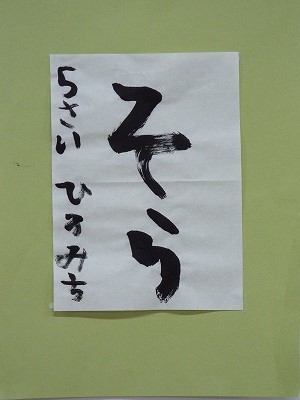 そら
5さい ひろみち